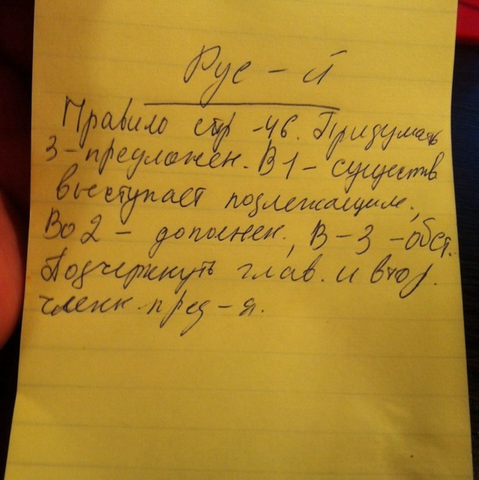 Рус-й
Правило стр-46. Придумать
3-предложен. В 1-существ
выступает подлежащим,
Во 2 - дополнен., В-3-обст.
Подчеркнуть глав. и втор.
член. пред-я.